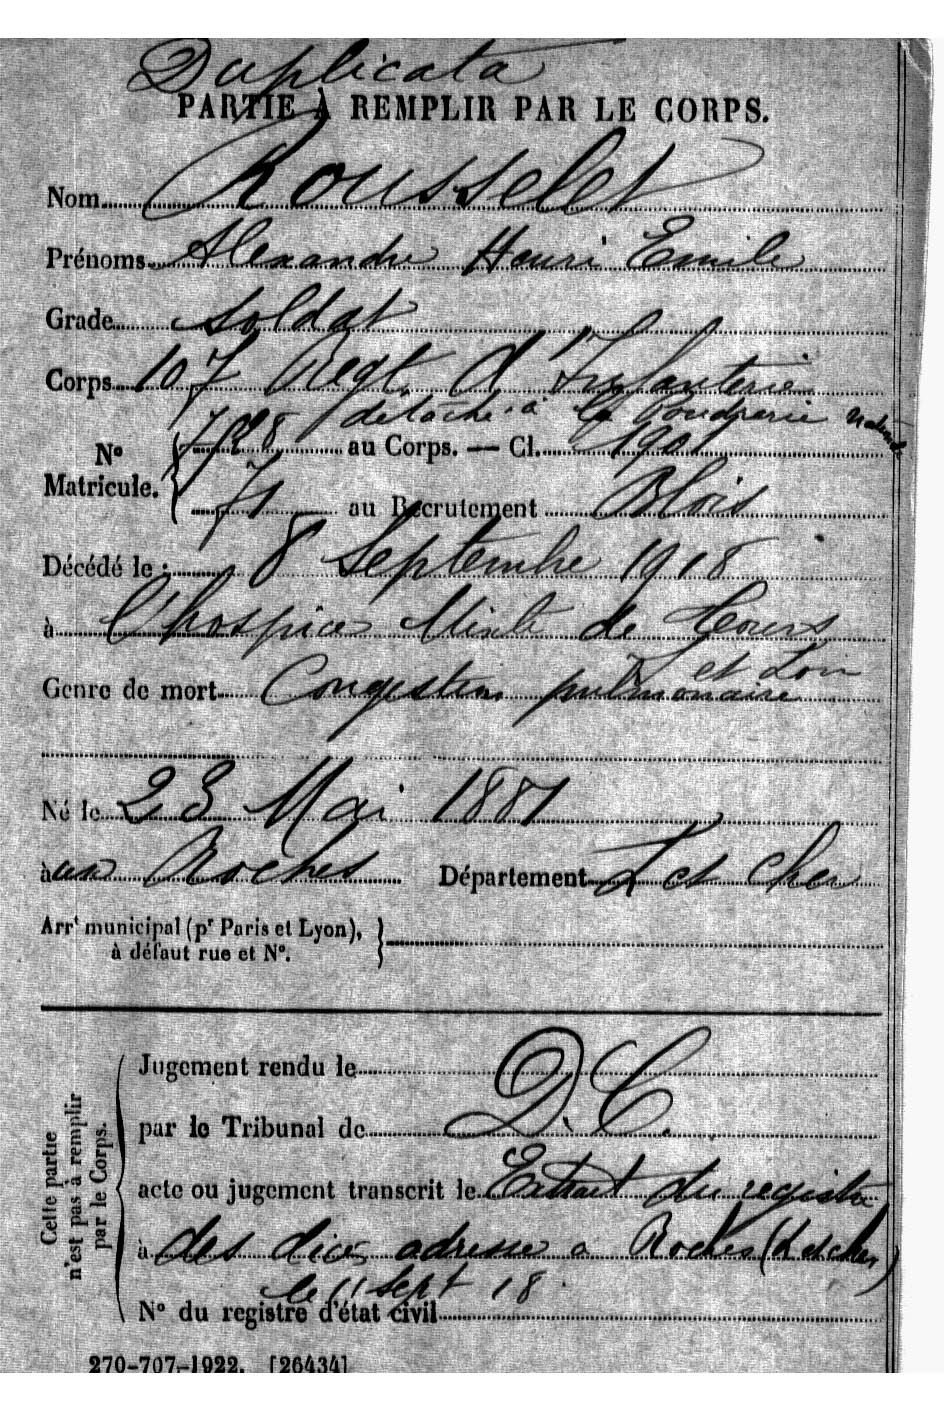 Duplicata
PARTIE À REMPLIR PAR LE CORPS.
Nom Rousselet
Prénoms Alexandre Henri Emile
Grade Soldat
Corps 107 Regt. d'Infanterie
détaché à la Poudrerie
No Matricule. 7128 au Corps. — Cl. 1901
71 au Recrutement Blois
Décédé le : 8 Septembre 1918
à l'hospice Mixte de Tours
I et Loir
Genre de mort Congestion pulmonaire
Né le 23 Mai 1881
à aux Roches Département L et Cher
Arrt municipal (pr Paris et Lyon),
à défaut rue et No.
D. C.
Cette partie
n'est pas à remplir
par le Corps.
Jugement rendu le
par le Tribunal de
acte ou jugement transcrit le Extrait du registre
à des dics adresse a Roches (L et cher)
le 11 Sept 18.
No du registre d'état civil
270-707-1922. [26434]